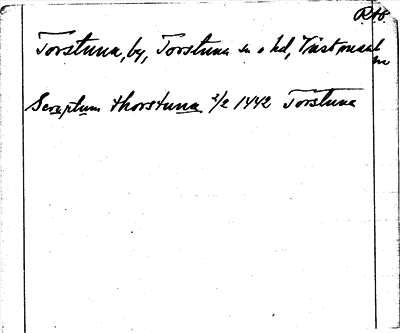 RAÖ
Torstuna, by, Torstuna sn o hd, Västmanl
Scriptum thorstuna 2/2 1442 Torstuna